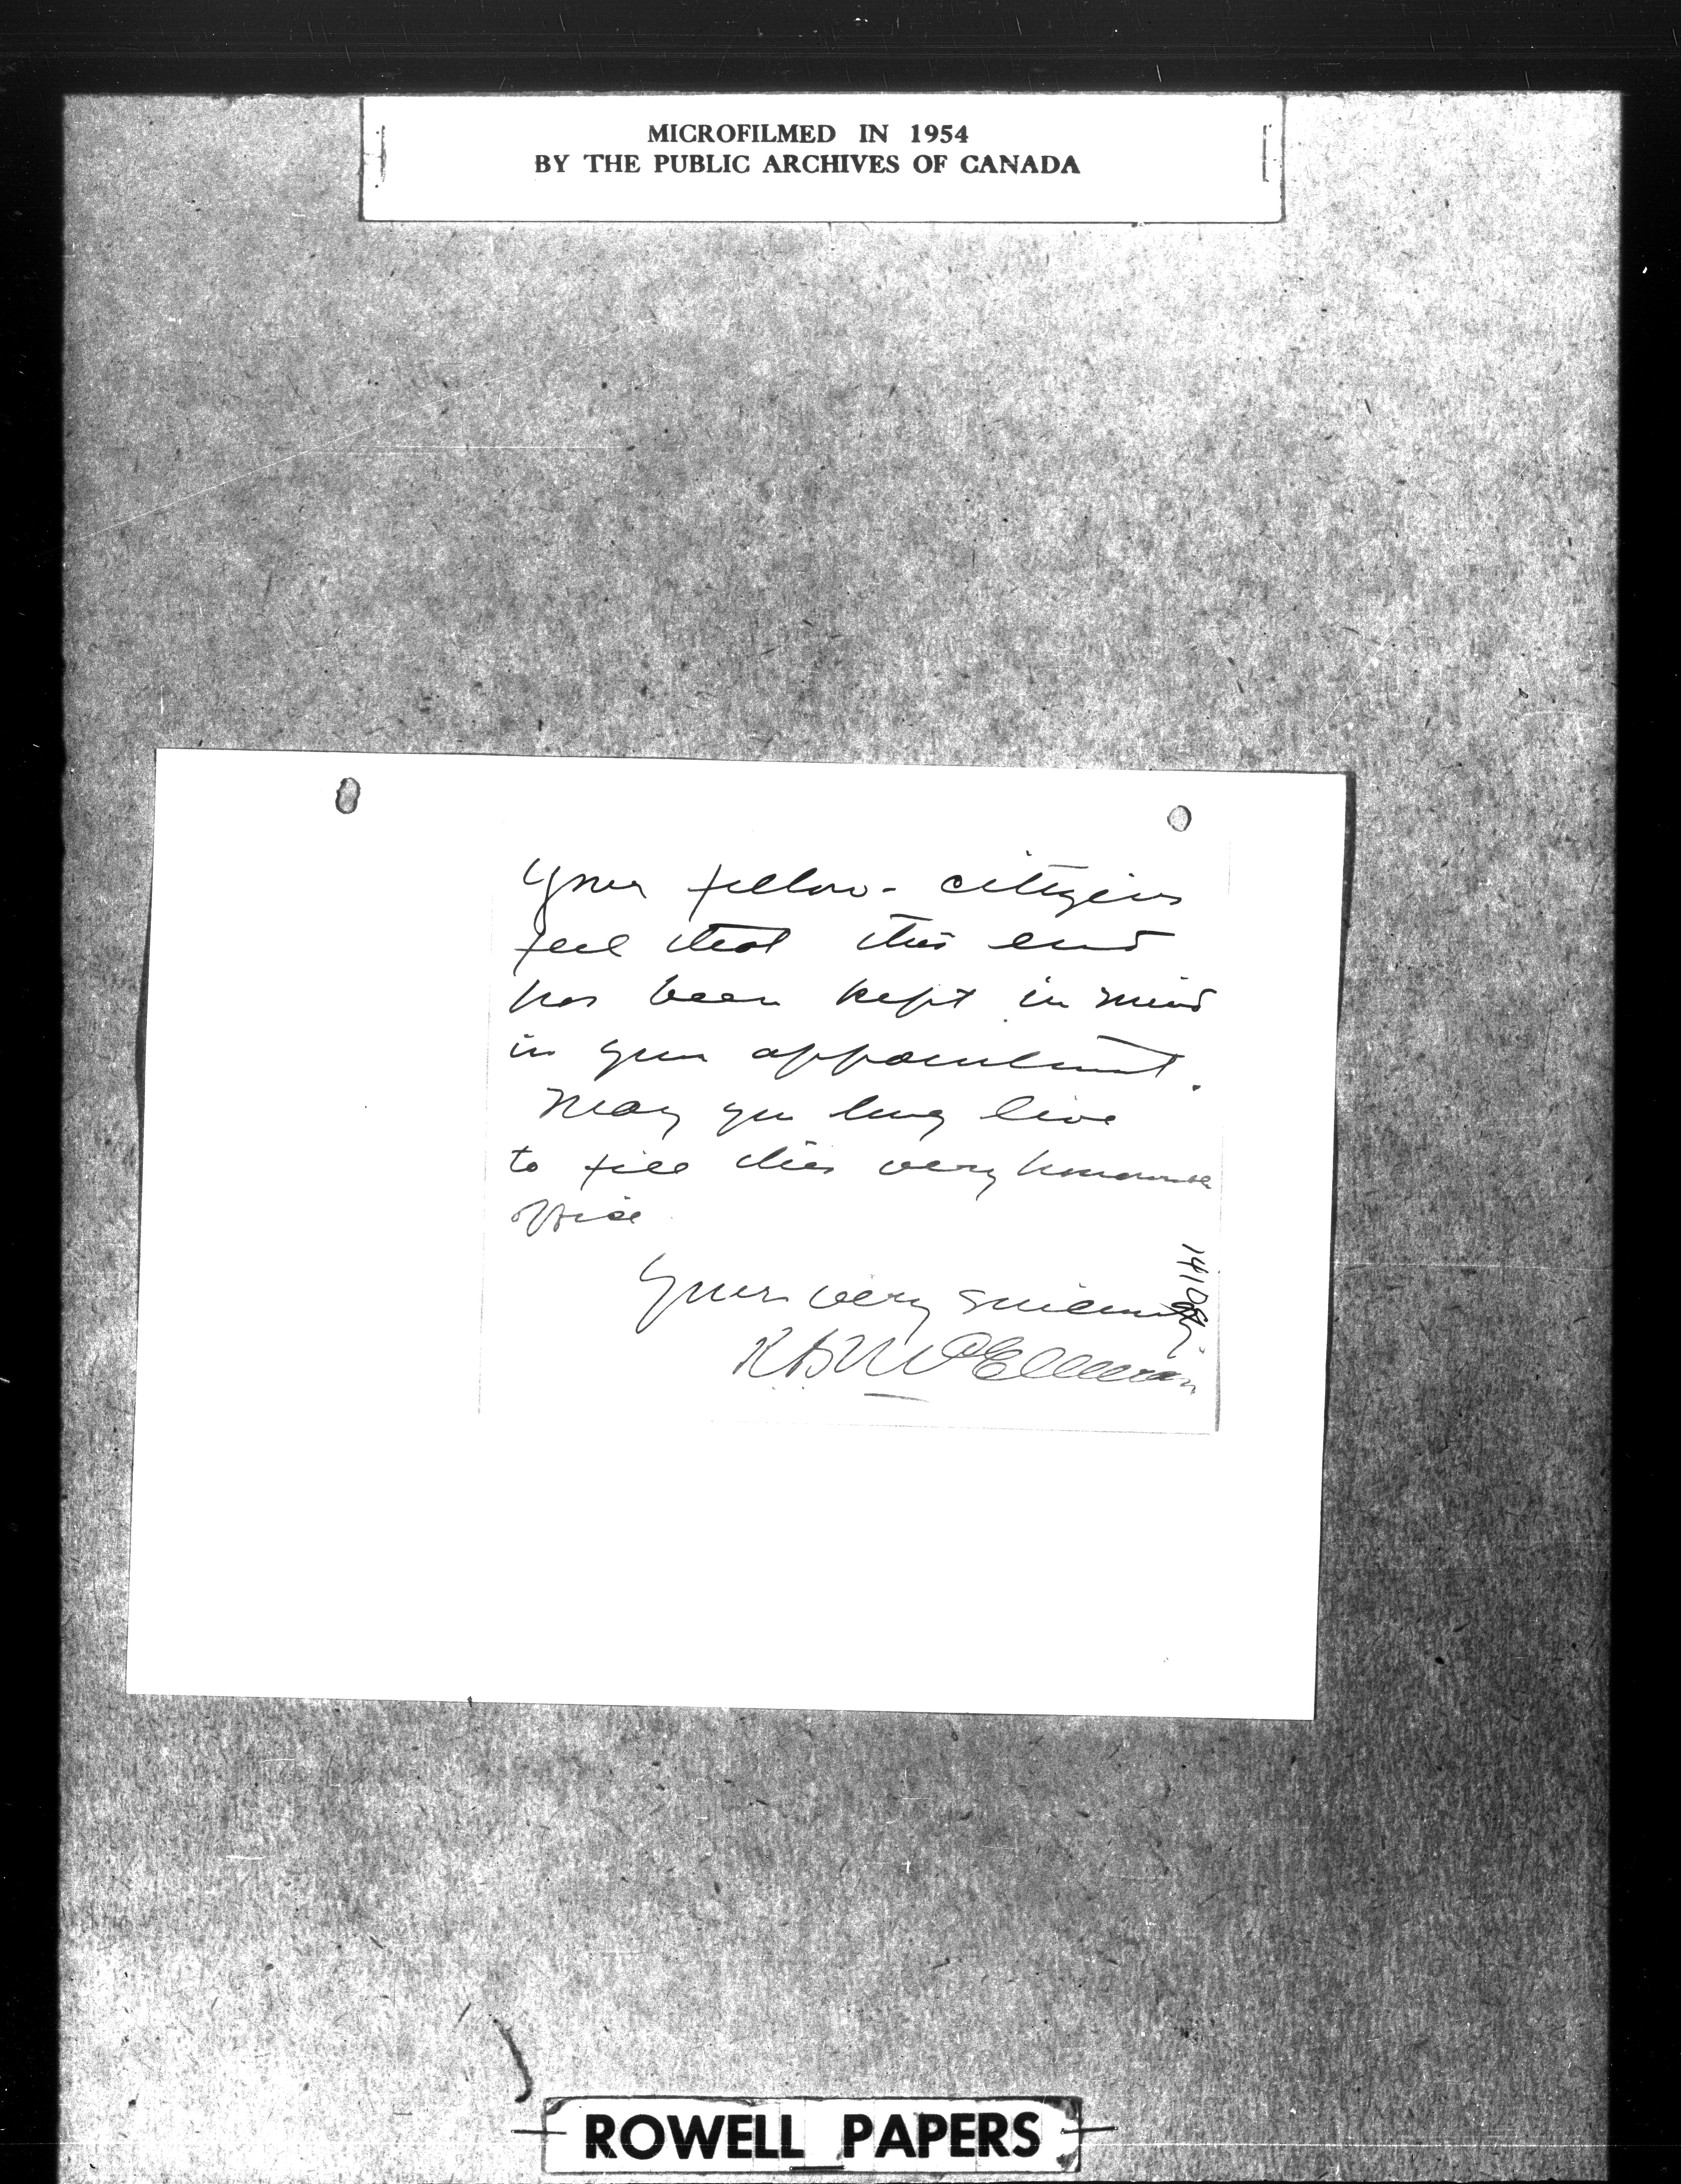 MICROFILMED IN 1954
BY THE PUBLIC ARCHIVES OF CANADA
Your fellow-citizens
feel that this end
has been kept in mind
in your appointment.
May you long live
to fill this very honourable
office
Yours very sincerely
ROWELL PAPERS